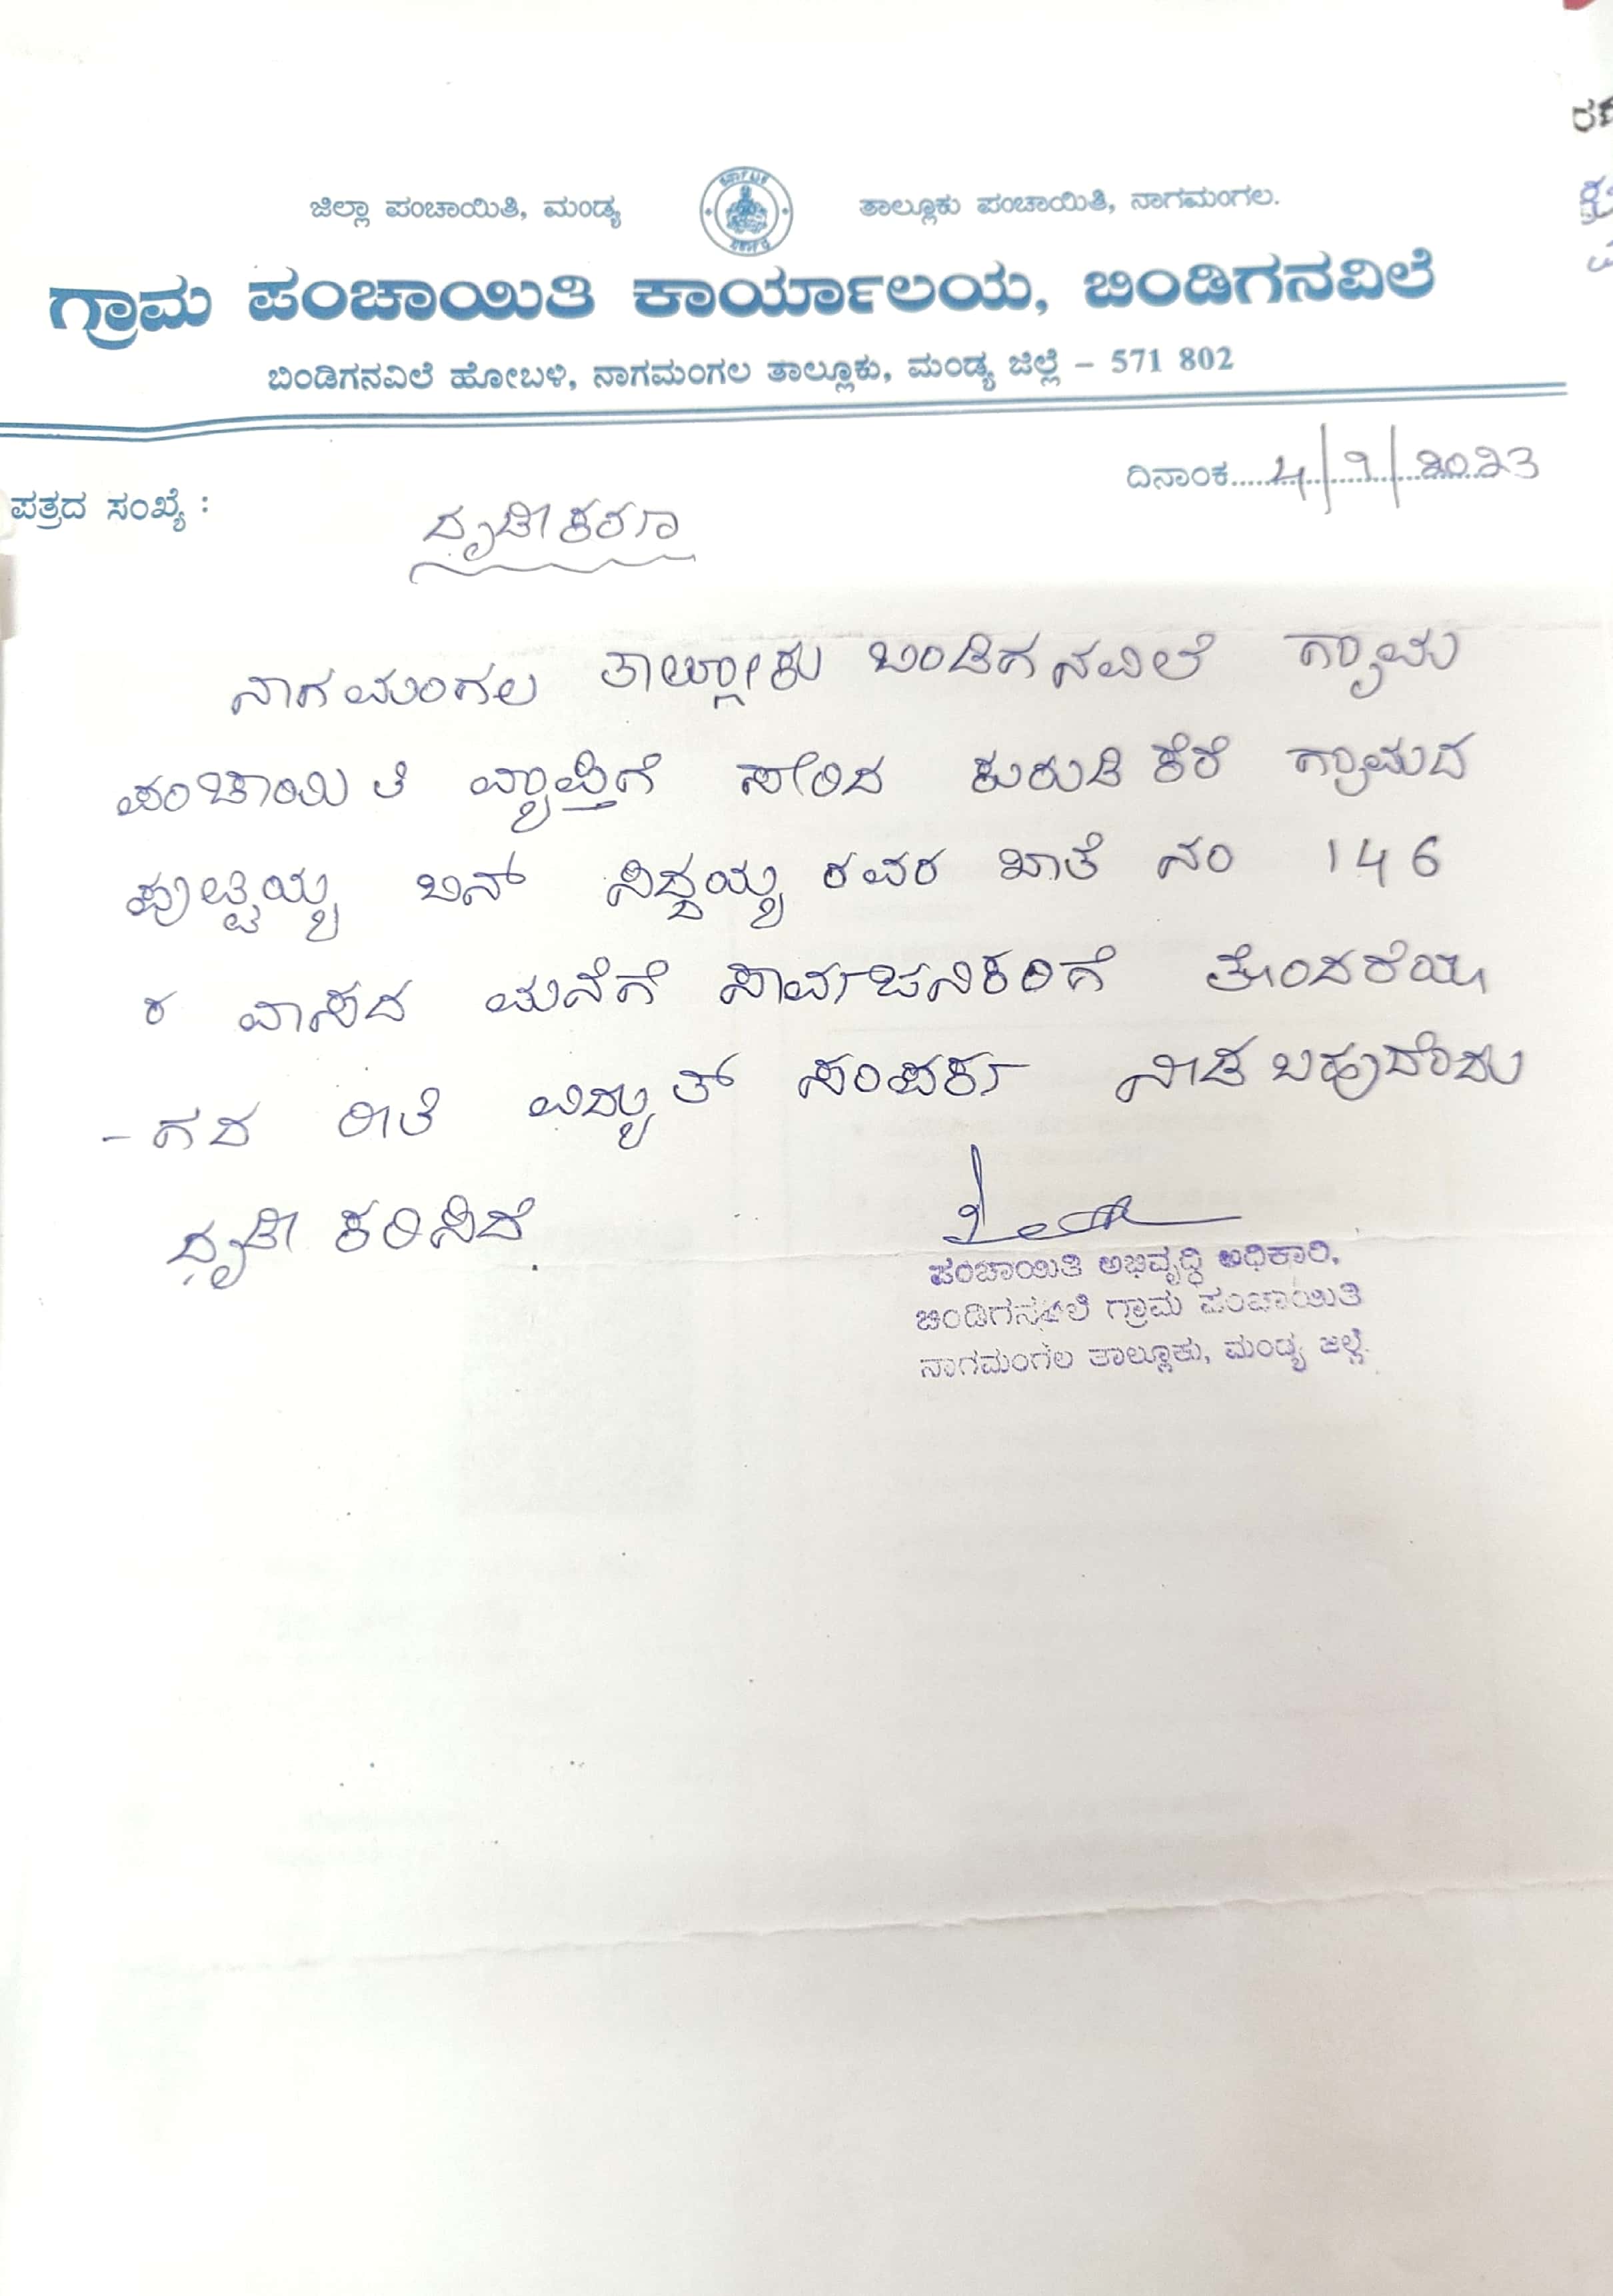 ಜಿಲ್ಲಾ ಪಂಚಾಯಿತಿ, ಮಂಡ್ಯ ತಾಲ್ಲೂಕು ಪಂಚಾಯಿತಿ, ನಾಗಮಂಗಲ.
ಗ್ರಾಮ ಪಂಚಾಯಿತಿ ಕಾರ್ಯಾಲಯ, ಬಿಂಡಿಗನವಿಲೆ
ಬಿಂಡಿಗನವಿಲೆ ಹೋಬಳಿ, ನಾಗಮಂಗಲ ತಾಲ್ಲೂಕು, ಮಂಡ್ಯ ಜಿಲ್ಲೆ – 571 802
ದಿನಾಂಕ 4/9/2023
ಪತ್ರದ ಸಂಖ್ಯೆ :
ದೃಢೀಕರಣ
ನಾಗಮಂಗಲ ತಾಲ್ಲೋಕು ಬಿಂಡಿಗನವಿಲೆ ಗ್ರಾಮ
ಪಂಚಾಯಿತಿ ವ್ಯಾಪ್ತಿಗೆ ಸೇರಿದ ಕುರುಡಿಕೆರೆ ಗ್ರಾಮದ
ಪುಟ್ಟಯ್ಯ ಬಿನ್ ಸಿದ್ದಯ್ಯ ರವರ ಖಾತೆ ನಂ 146
ರ ವಾಸದ ಮನೆಗೆ ಸಾರ್ವಜನಿಕರಿಗೆ ತೊಂದರೆಯಾ
-ಗದ ರೀತಿ ವಿದ್ಯುತ್ ಸಂಪರ್ಕ ನೀಡಬಹುದೆಂದು
ದೃಢೀಕರಿಸಿದೆ
ಪಂಚಾಯಿತಿ ಅಭಿವೃದ್ಧಿ ಅಧಿಕಾರಿ,
ಬಿಂಡಿಗನವಿಲೆ ಗ್ರಾಮ ಪಂಚಾಯಿತಿ
ನಾಗಮಂಗಲ ತಾಲ್ಲೂಕು, ಮಂಡ್ಯ ಜಿಲ್ಲೆ.